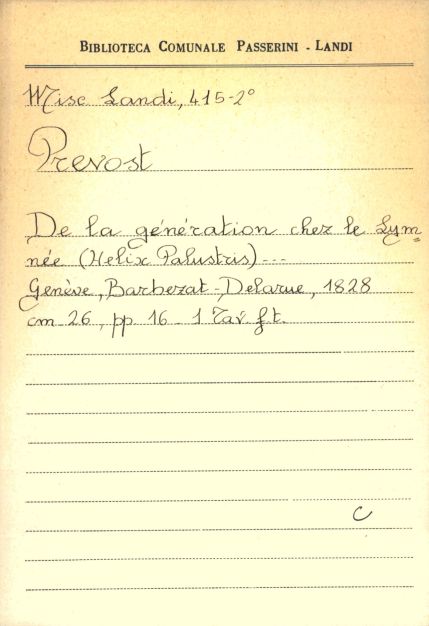 BIBLIOTECA COMUNALE PASSERINI - LANDI
Misc Landi, 415-2°
Prevost
De la génération chez le Lym=
née (Helix Palustris)---
Genève, Barbezat-Delarue, 1828
cm 26, pp 16 - 1 Tav. f.t.
C